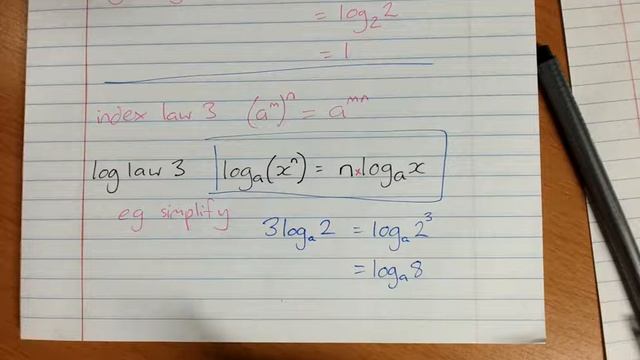 = log₂2
= 1
index law 3 (aᵐ)ⁿ = aᵐⁿ
log law 3 logₐ(xⁿ) = n×logₐx
eg simplify 3logₐ2 = logₐ2³
= logₐ8